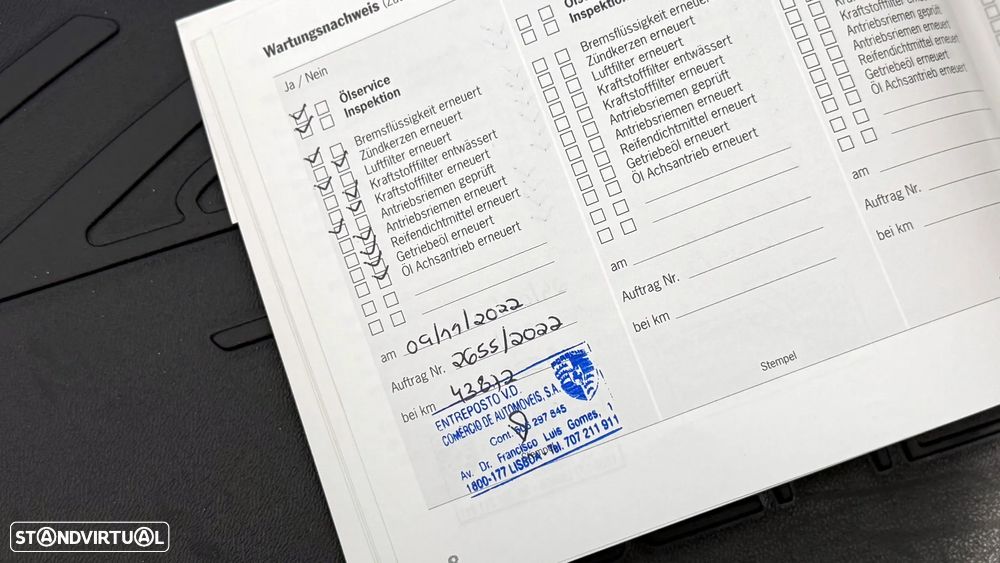 Wartungsnachweis
Ja / Nein
Ölservice
Inspektion
Bremsflüssigkeit erneuert
Zündkerzen erneuert
Luftfilter erneuert
Kraftstofffilter entwässert
Kraftstofffilter erneuert
Antriebsriemen geprüft
Antriebsriemen erneuert
Reifendichtmittel erneuert
Getriebeöl erneuert
Öl Achsantrieb erneuert
am 09/11/2022
Auftrag Nr. 2655/2022
bei km 43872
ENTREPOSTO V.D.
COMÉRCIO DE AUTOMOVEIS, S.A.
Cont. 297 845
Av. Dr. Francisco Luis Gomes, 1
1800-177 LISBOA - Tel. 707 211 911
Inspektion
Bremsflüssigkeit erneuert
Zündkerzen erneuert
Luftfilter erneuert
Kraftstofffilter entwässert
Kraftstofffilter erneuert
Antriebsriemen geprüft
Antriebsriemen erneuert
Reifendichtmittel erneuert
Getriebeöl erneuert
Öl Achsantrieb erneuert
am
Auftrag Nr.
bei km
Stempel
Kraftstofffilter erneuert
Antriebsriemen geprüft
Antriebsriemen erneuert
Reifendichtmittel erneuert
Getriebeöl erneuert
Öl Achsantrieb erneuert
am
Auftrag Nr.
bei km
STANDVIRTUAL